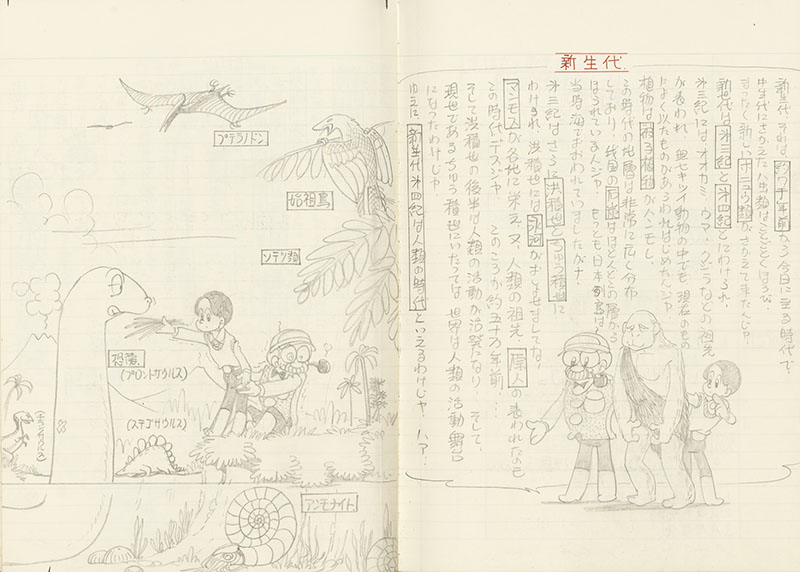 新生代
新生代、それは から今日に至る時代で
中生代にさかえたハ虫類はことごとくほろび、
まったく新しいホニュウ類がさかえて来たんじゃ
新生代は第三紀と第四紀とにわけられ、
第三紀にはオオカミ、ウマ、クジラなどの祖先
が表われ、無セキツイ動物の中でも現在のもの
によく似たものがあらわれはじめたんジャ
植物は被子植物がハンモし、
この時代の地層は非常に広く分布
しており、我国の石炭はほとんどこの層から
ほられているんジャ、もっとも日本列島は
当時海でおおわれていましたがナ、
第三紀はさらに洪積世とちゅう積世に
わけられ、洪積世には氷河がおしよせましてな、
マンモスが各地に栄え、又、人類の祖先、原人の表われたのも
この時代デスジャ このころが約五十万年前・・・
そして洪積世の後半は人類の活動が活発になり、そして、
現世であるちゅう積世にいたっては世界は人類の活動舞台
になったわけじゃ
ゆえに新生代第四紀は人類の時代といえるわけじゃ、ハア.
プテラノドン
始祖鳥
ソテツ類
恐竜
(ブロントサウルス)
(ステゴサウルス)
アンモナイト